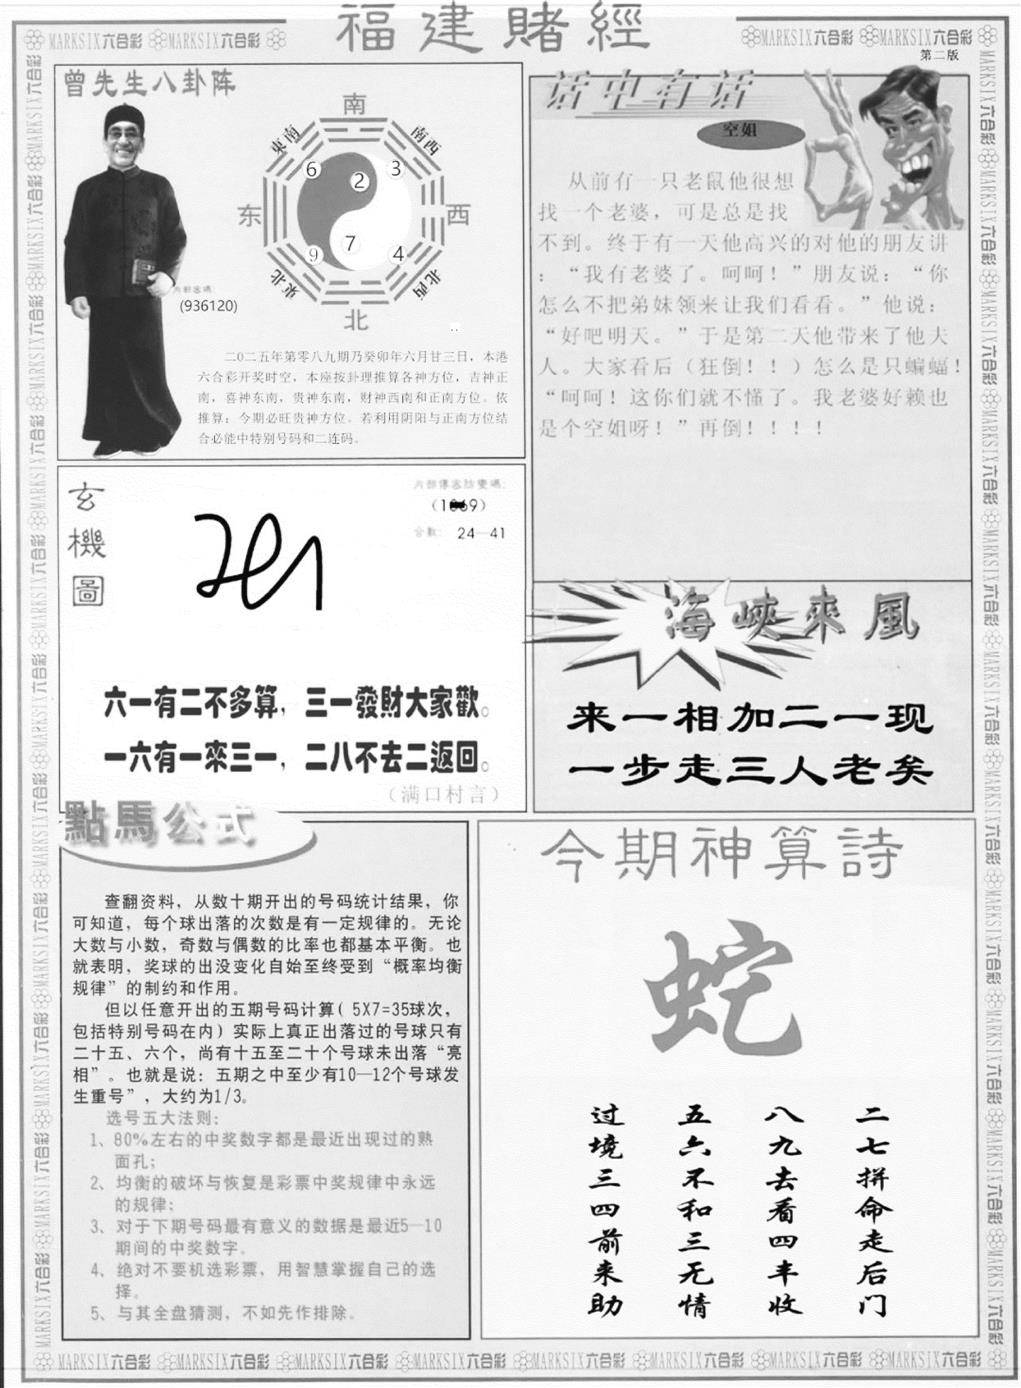 福建賭經
MARKSIX六合彩 MARKSIX六合彩
MARKSIX六合彩 MARKSIX六合彩
第二版
曾先生八卦阵
南
東南
南西
6
2
3
东
西
7
9
4
東北
北西
北
内部密碼:
(936120)
二O二五年第零八九期乃癸卯年六月廿三日，本港
六合彩开奖时空，本座按卦理推算各神方位，吉神正
南，喜神东南，贵神东南，财神西南和正南方位。依
推算：今期必旺贵神方位。若利用阴阳与正南方位结
合必能中特别号码和二连码。
话中有话
空姐
从前有一只老鼠他很想
找一个老婆，可是总是找
不到。终于有一天他高兴的对他的朋友讲
：“我有老婆了。呵呵！”朋友说：“你
怎么不把弟妹领来让我们看看。”他说：
“好吧明天。”于是第二天他带来了他夫
人。大家看后（狂倒！！）怎么是只蝙蝠！
“呵呵！这你们就不懂了。我老婆好赖也
是个空姐呀！”再倒！！！！
玄機圖
合數: 24—41
六一有二不多算，三一發財大家歡。
一六有一來三一，二八不去二返回。
（满口村言）
海峽來風
来一相加二一现
一步走三人老矣
點馬公式
查翻资料，从数十期开出的号码统计结果，你
可知道，每个球出落的次数是有一定规律的。无论
大数与小数，奇数与偶数的比率也都基本平衡。也
就表明，奖球的出没变化自始至终受到“概率均衡
规律”的制约和作用。
但以任意开出的五期号码计算( 5X7=35球次，
包括特别号码在内）实际上真正出落过的号球只有
二十五、六个，尚有十五至二十个号球未出落“亮
相”。也就是说：五期之中至少有10—12个号球发
生重号”，大约为1/3。
选号五大法则:
1、80%左右的中奖数字都是最近出现过的熟
面孔;
2、均衡的破坏与恢复是彩票中奖规律中永远
的规律;
3、对于下期号码最有意义的数据是最近5—10
期间的中奖数字。
4、绝对不要机选彩票，用智慧掌握自己的选
择。
5、与其全盘猜测，不如先作排除。
今期神算詩
蛇
二七拼命走后门
八九去看四丰收
五六不和三无情
过境三四前来助
MARKSIX六合彩 MARKSIX六合彩 MARKSIX六合彩 MARKSIX六合彩 MARKSIX六合彩 MARKSIX六合彩 MARKSIX六合彩 MARKSIX六合彩